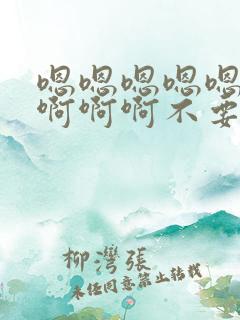 嗯嗯嗯嗯嗯
啊啊啊不要
柳灣張
未经同意禁止转载